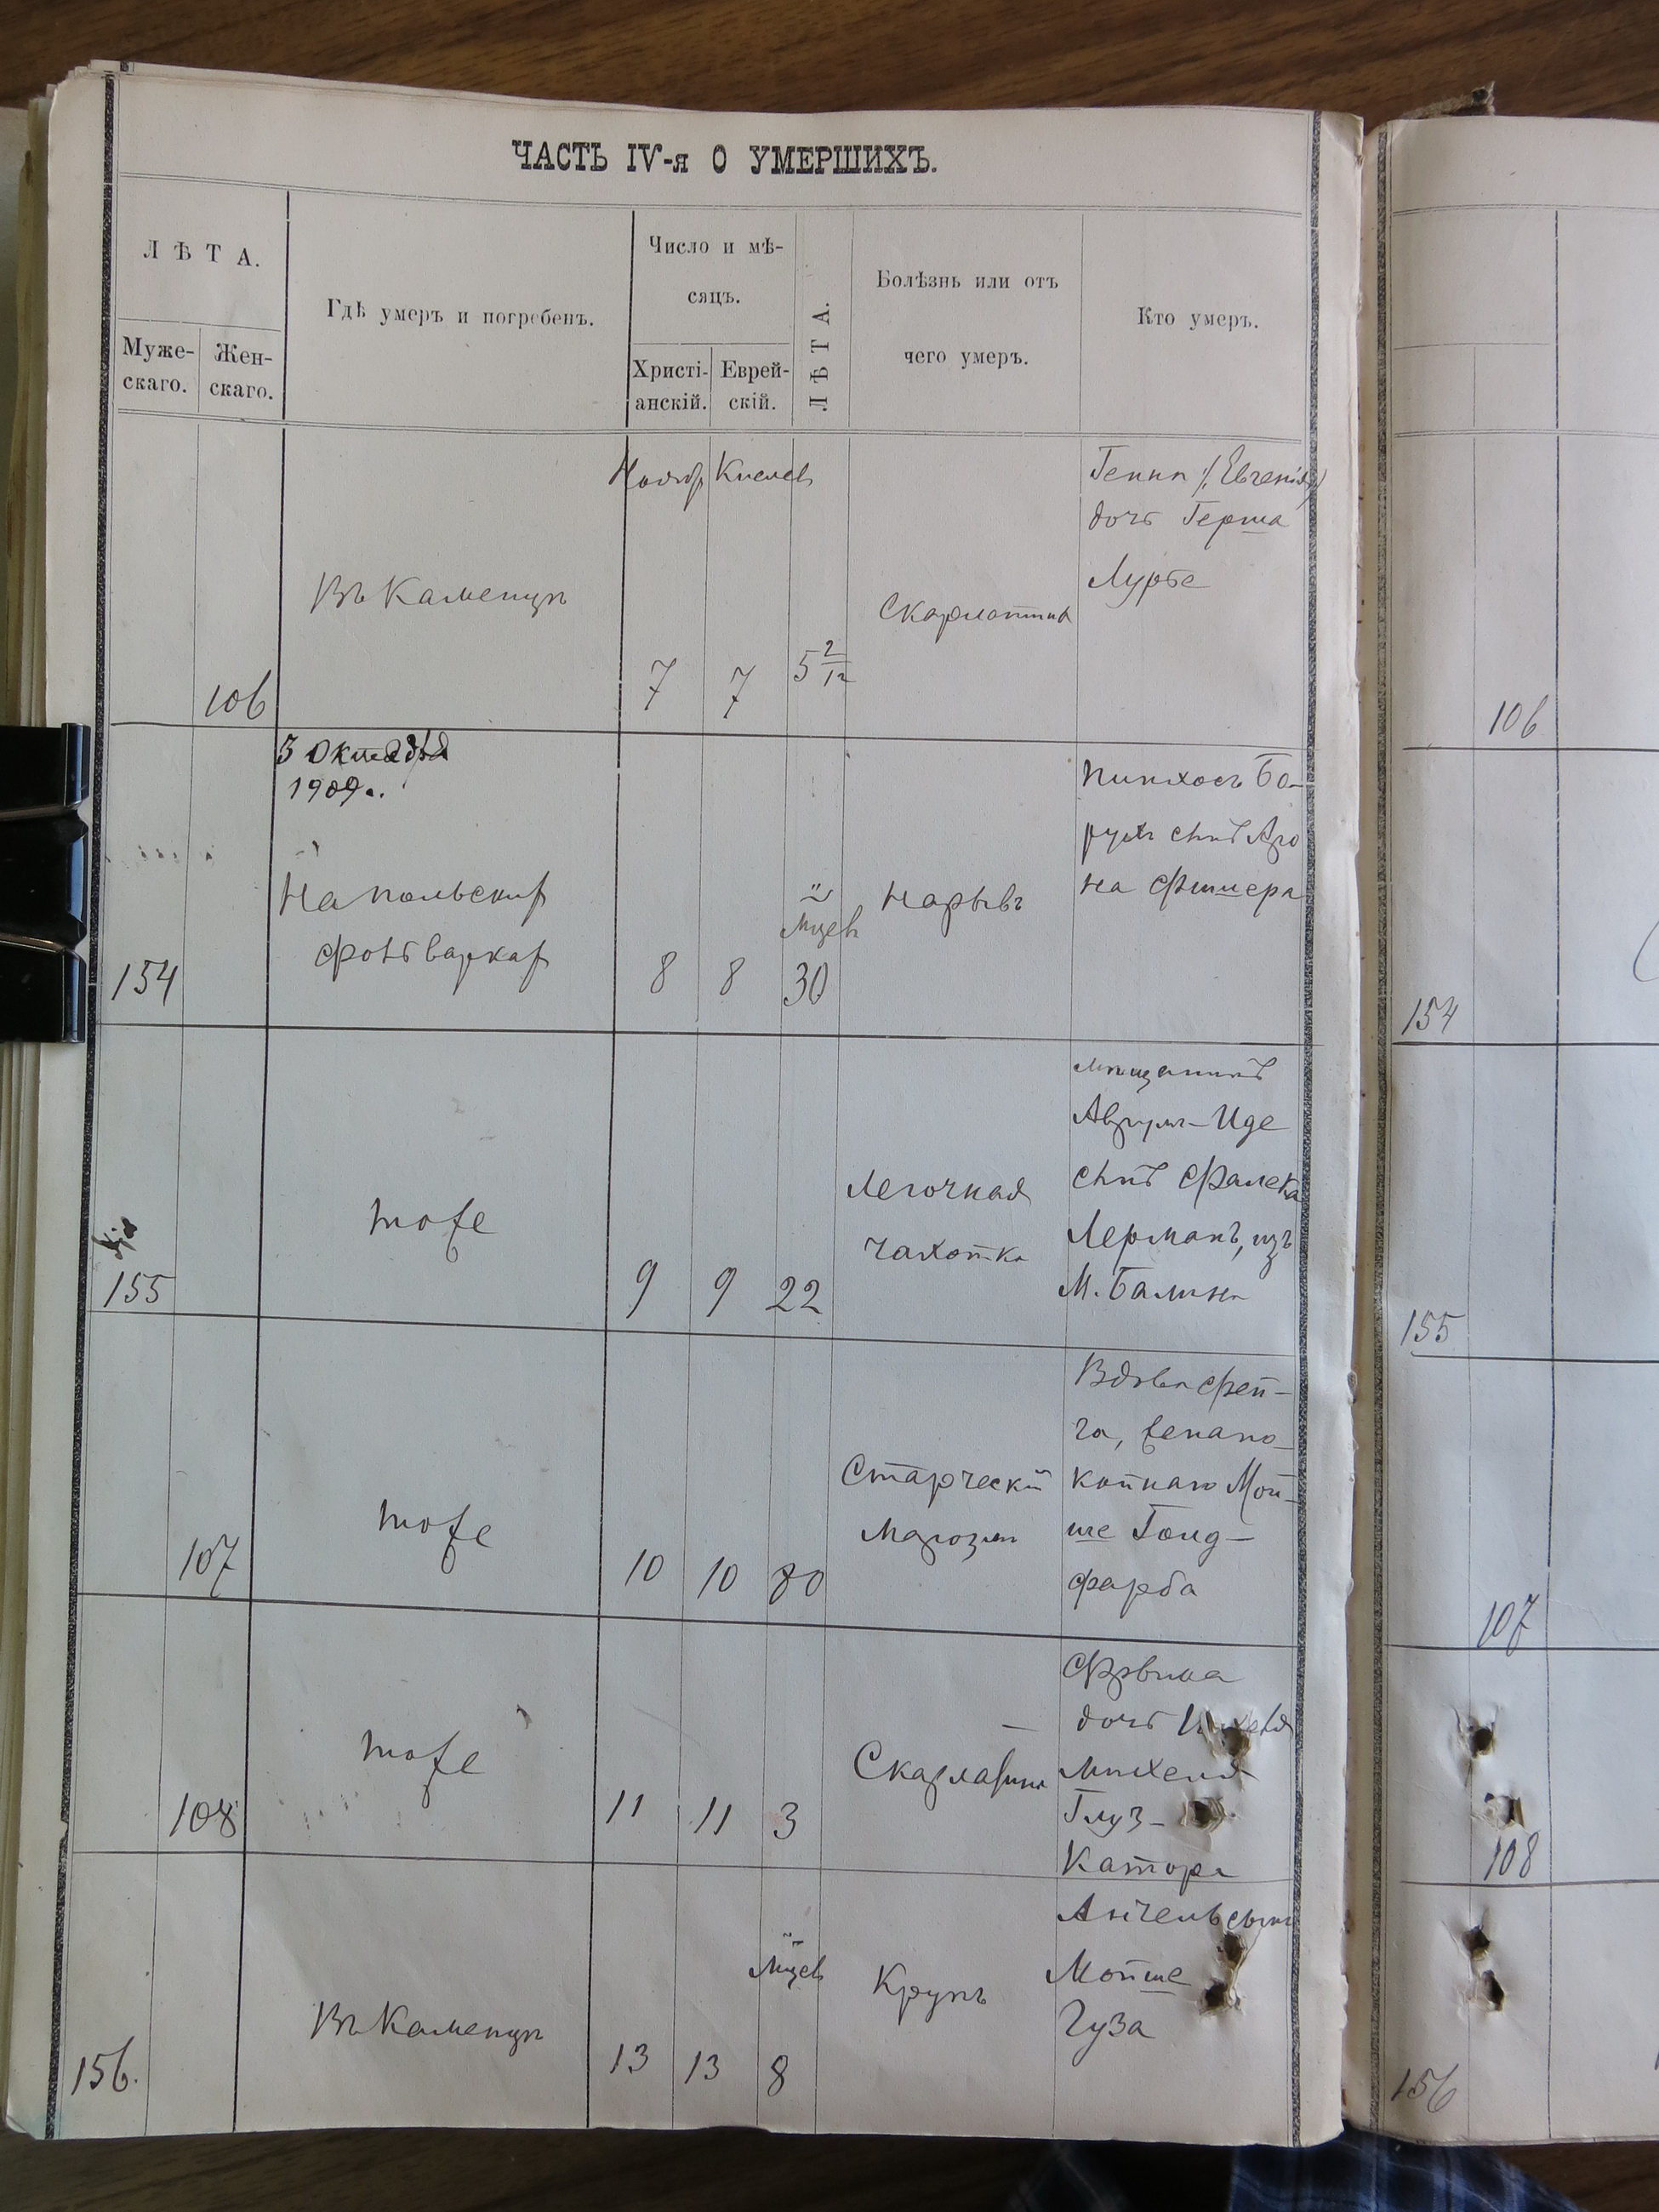 ЧАСТЬ IV-я О УМЕРШИХЪ.
ЛѢТА.
Муже-
скаго.
Жен-
скаго.
Гдѣ умеръ и погребенъ.
Число и мѣ-
сяцъ.
Христі-
анскій.
Еврей-
скій.
ЛѢТА.
Болѣзнь или отъ
чего умеръ.
Кто умеръ.
106
Въ Каменцѣ
Ноябр
7
Кислев
7
5 2/12
Скарлатина
Гения /Евгенія/
дочь Герша
Лурье
106
154
3 Октября
1909 г.
На польских
фольварках
8
8
Мцев
30
Нарывъ
Пинхосъ Ба-
рухъ сынъ Аро
на Фишера
154
155
тоже
9
9
22
Легочная
чахотка
мѣщанинъ
Аврумъ-Иде
сынъ Фалека
Лерманъ, изъ
М. Балина
155
107
тоже
10
10
80
Старческій
маразм
Вдова Фей-
га, жена по-
койнаго Мой-
ше Голд-
фарба
107
108
тоже
11
11
3
Скарлатина
дочь
Михеля
Глуз-
Катора
108
156.
Въ Каменцѣ
13
13
Мцев
8
Крупъ
сынъ
Мойше
Гуза
156